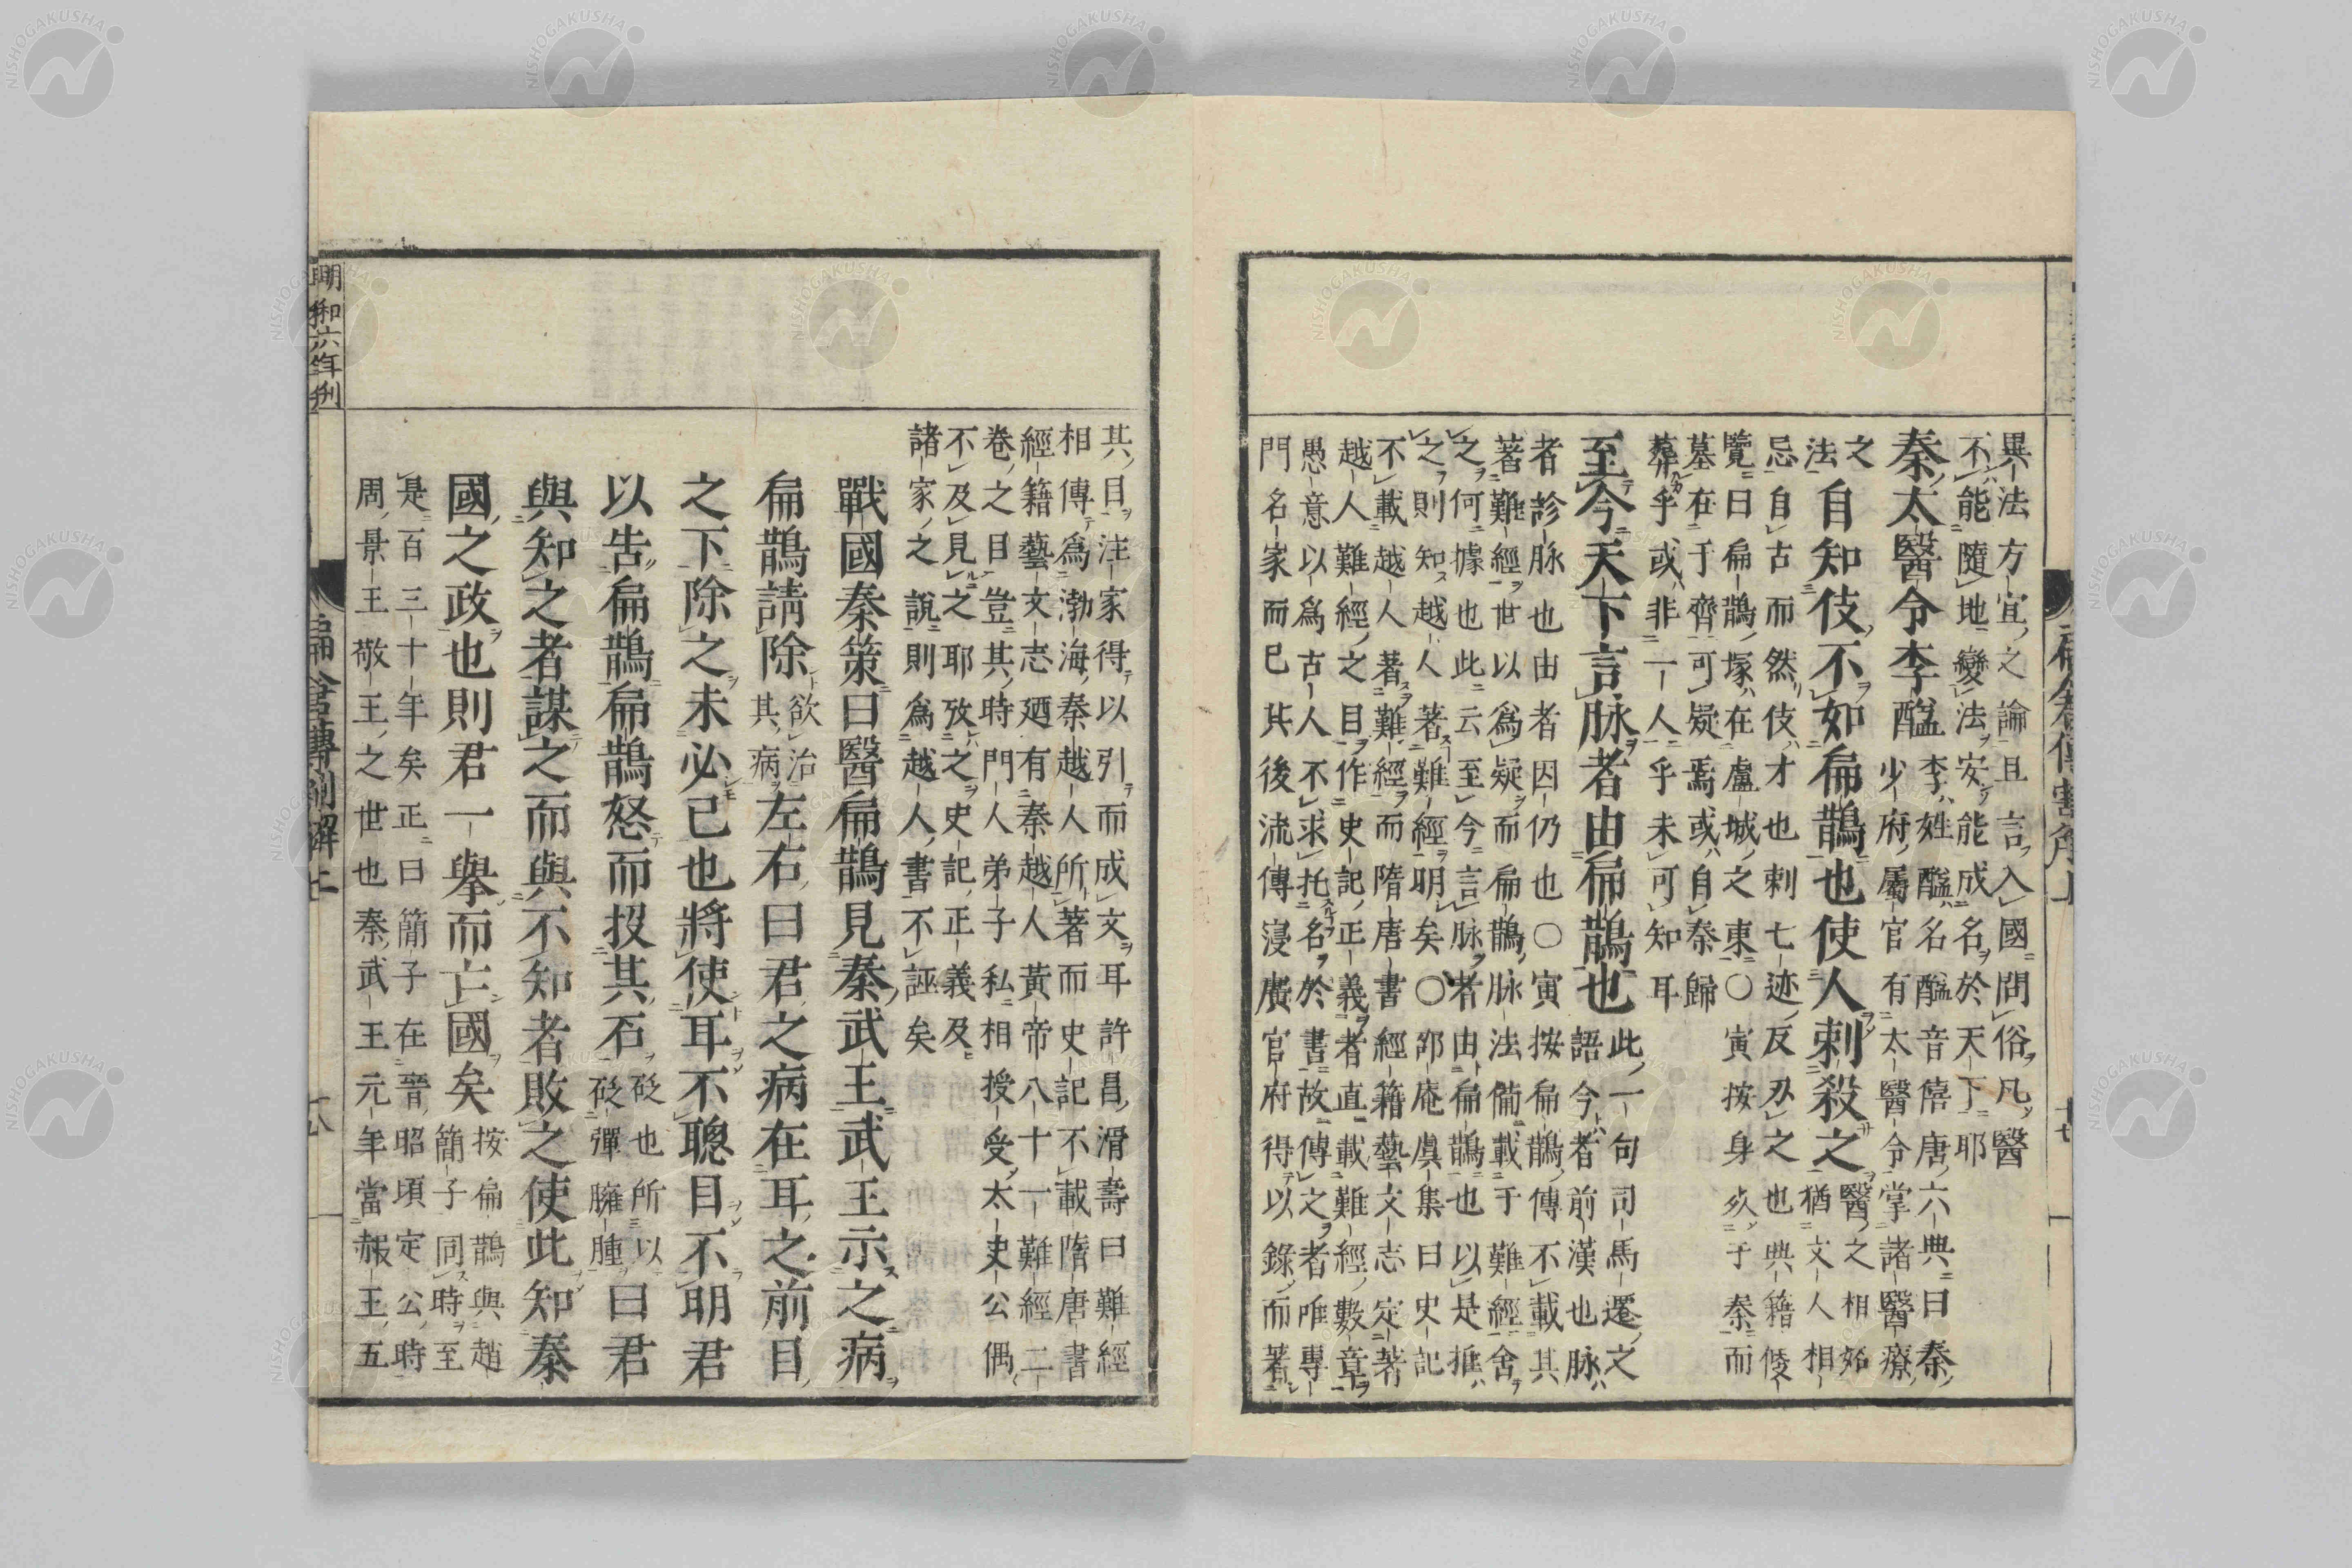 異法方宜之論且言入國問俗凡醫
不能隨地變法安能成名於天下耶
秦太醫令李醯
李姓醯名醯音僖唐六典曰秦
少府屬官有太醫令掌諸醫療
之
法
自知伎不如扁鵲也使人刺殺之
醫之相妬
猶文人相
忌自古而然伎才也刺七迹反刄之也典籍倰
覽曰扁鵲塚在盧城之東○寅按身歿于秦而
墓在于齊可疑焉或自秦歸
葬乎或非一人乎未可知耳
至今天下言脉者由扁鵲也
此一句司馬遷文
語今者前漢也脉
者診脉也由者因仍也○寅按扁鵲傳不載其
著難經世以爲疑而扁鵲脉法備載于難經舍
之何據也此云至今言脉者由扁鵲也以是推
之則知越人著難經明矣○邵庵虞集曰史記
不載越人著難經而隋唐書經籍藝文志定著
越人難經之目作史記正義者直載難經數章
愚意以爲古人不求托名於書故傳之者唯專
門名家而已其後流傳寖廣官府得以錄而著
其目注家得以引而成文耳許昌滑壽曰難經
相傳爲渤海秦越人所著而史記不載隋唐書
經籍藝文志廼有秦越人黃帝八十一難經二
卷之目豈其時門人弟子私相授受太史公偶
不及見之耶攷之史記正義及
諸家之說則爲越人書不誣矣
戰國秦策曰醫扁鵲見秦武王武王示之病
扁鵲請除
欲治
其病
左右曰君之病在耳之前目
之下除之未必已也將使耳不聰目不明君
以告扁鵲扁鵲怒而投其石
砭也所以
砭彈臃腫
曰君
與知之者謀之而與不知者敗之使此知秦
國之政也則君一舉而亡國矣
按扁鵲與趙
簡子同時至
是百三十年矣正曰簡子在晉昭頃定公時
周景王敬王之世也秦武王元年當赧王五
明和六年刊
扁倉傳割解上
十八